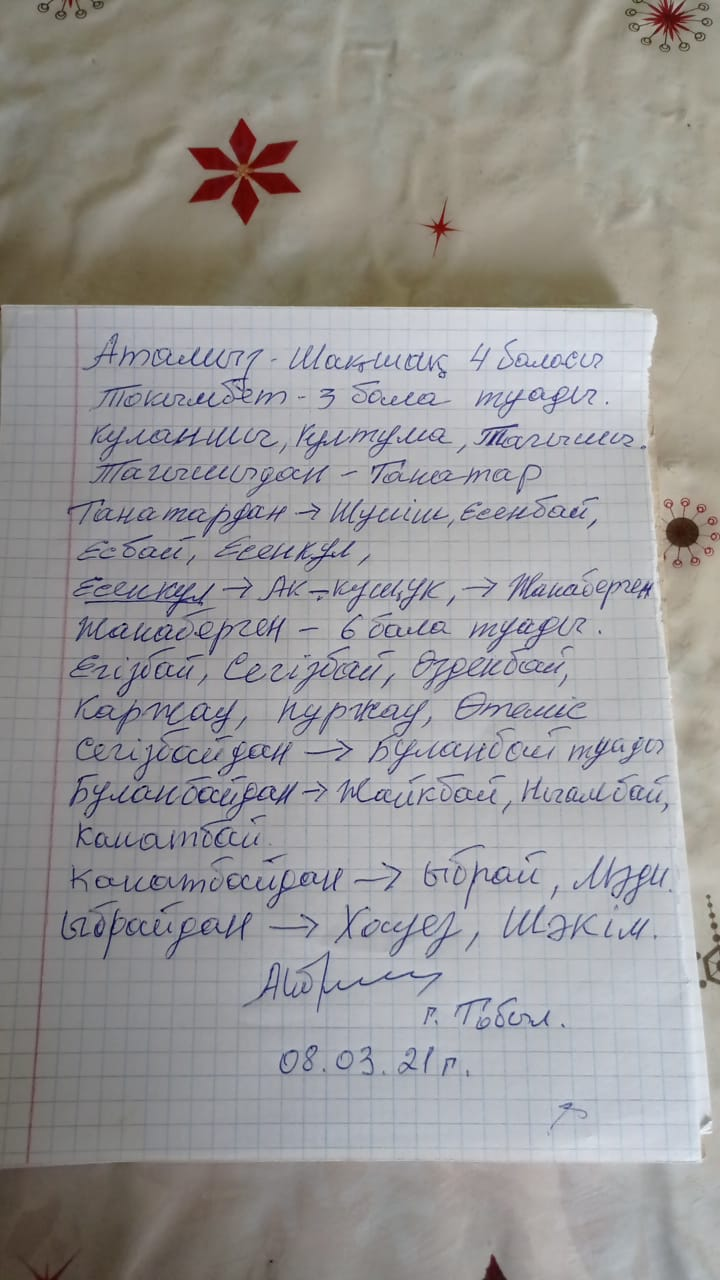 Аталиыз - Шақшақ 4 баласы
Токымбет - 3 бала туады.
Куланшы, Култума, Тагышы.
Тагышыдан - Танатар
Танатардан → Шүйіш, Есенбай,
Есбай, Есенкул,
Есенкул → Ак-кущук, → Жанаберген
Жанаберген - 6 бала туады.
Егізбай, Сегізбай, Өзденбай,
Каржау, Нуржау, Өтеміс
Сегізбайдан → Буланбай туады
Буланбайдан → Жайкбай, Нігамбай,
Канатбай.
Канатбайдан → Ыбрай, Мәди.
Ыбрайдан → Хауез, Шәкім.
г. Тобыл.
08.03.21 г.